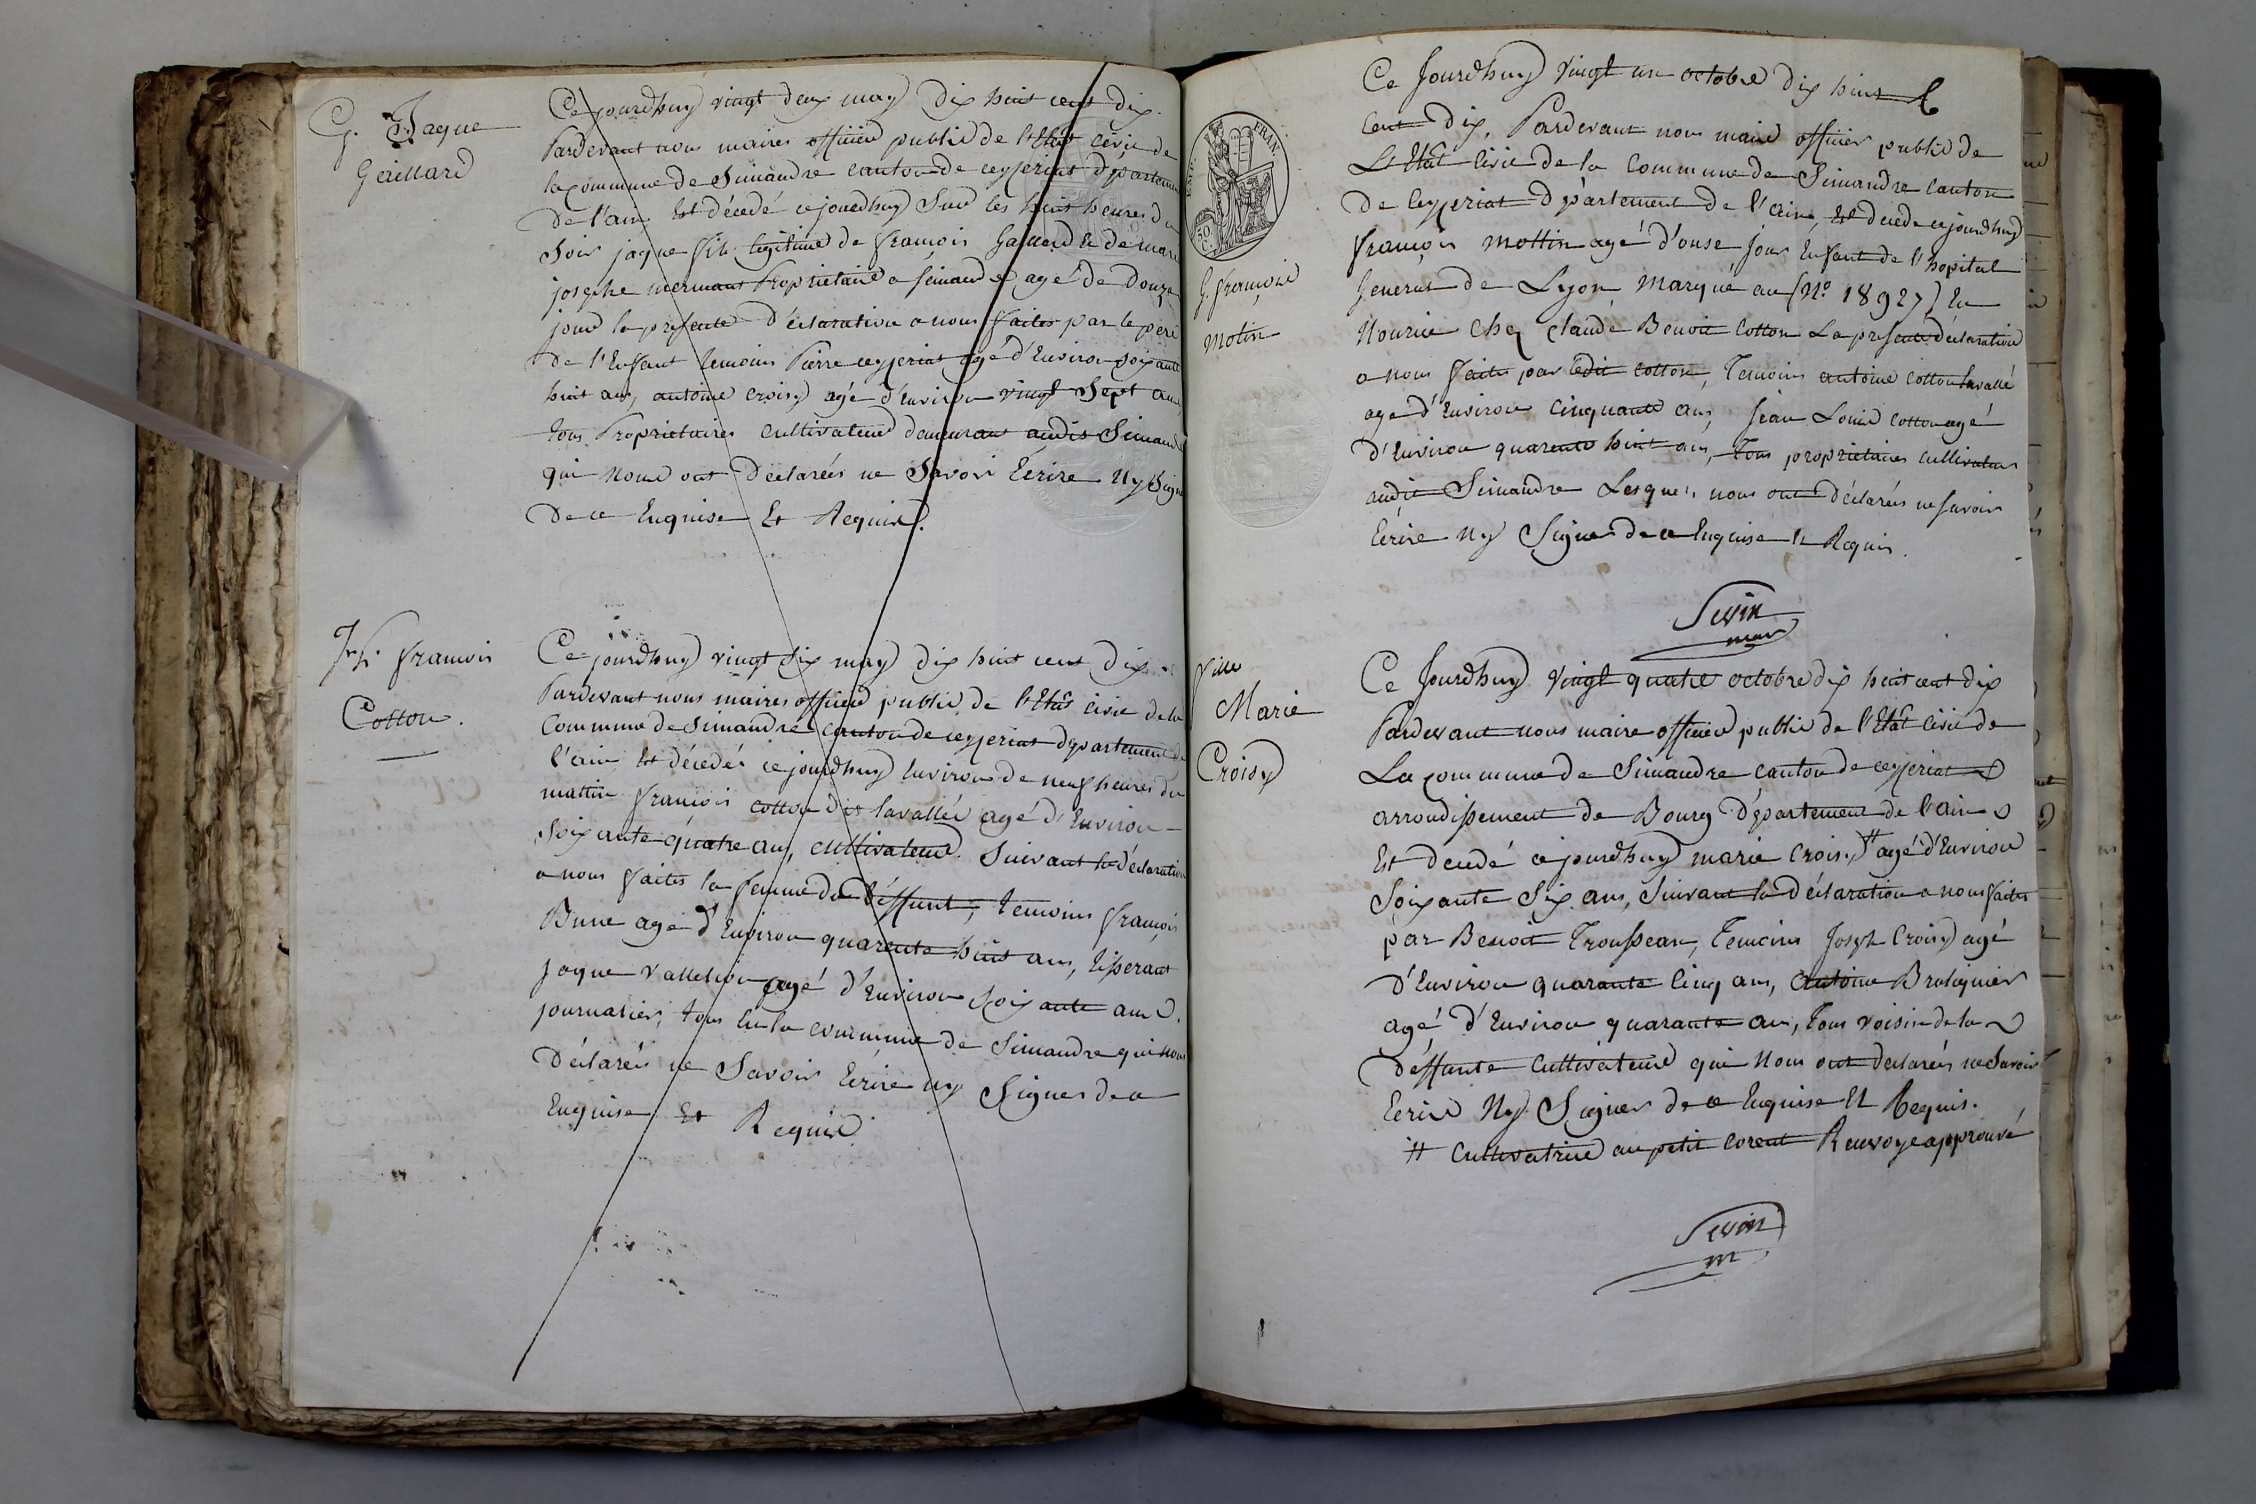 G. Jaque
Gaillard
Ce jourdhuy vingt deux may dix huit cent dix.
Pardevant nous maires officier public de l'Etat civic de
la commune de Simandre canton de ceyzeriat département
de l'ain Est décedé cejourdhuy Sur les huit heures du
Soir jaque fils legitime de françois Gaillard et de marie
josephe mermant Propriétaire a Simandre agé de Douze
jours la presente Déclaration a nous faites par le père
de l'Enfant temoins Pierre ceyzeriat agé d'Environ soixante
huit ans, antoine croisy agé d'Environ vingt Sept ans,
tous Proprietaires cultivateurs demeurant audit Simandre
qui nous ont Déclarées ne Savoir Ecrire Ny Signer
De ce Enquise Et Requis.
françois
Cotton.
Ce jourdhuy vingt six may dix huit cent dix.
Pardevant nous maires officier public de l'Etat civic de la
Commune de Simandre canton de ceyzeriat département de
l'ain Est décedé cejourdhuy Environ de neuf heures du
mattin françois cotton dit lavallée agé d'Environ
Soixante quatre ans, cultivateur. Suivant la déclaration
a nous faites la femme du déffunt, temoins françois
Bune agé d'Environ quarente huit ans, tisserant
jaque vallelion agé d'Environ Soixante ans.
journalier, tous En la commune de Simandre qui nous
Déclarés ne Savoir Ecrire ny Signer de ce
Enquise Et Requis
EMP. FRAN.
50
G. françois
Motin
Ce Jourdhuy vingt un octobre dix huit
Cent Dix, Pardevant nous maire officier public de
L'Etat Civic de la Commune de Simandre Canton
de Ceyzeriat Département de l'ain, Est decede cejourdhuy
françois mottin agé d'onse Jour Enfant de l'hopital
General de Lyon Marqué au (No. 18927) En
Nourice Chez Claude Benoit Cotton La presente déclaration
a nous faite par Ledit Cotton, Temoins antoine Cotton lavallé
agé d'Environ Cinquante ans, Jean Louis Cotton agé
d'Environ quarente huit ans, Tous proprietaires Cultivateurs
audit Simandre Lesquels nous ont Déclarées ne Savoir
Ecrire Ny Signer de ce Enquise Et Requis.
Sevin
maire
fille
Marie
Croisy
Ce Jourdhuy Vingt quatre octobre dix huit cent dix
Pardevant nous maire officier public de l'Etat Civic de
La Commune de Simandre canton de ceyzeriat
arrondissement de Bourg Département de l'ain
Est decedé cejourdhuy marie Croisy # agé d'Environ
Soixante Six ans, Suivant la Déclaration a nous faites
par Benoit Trousseau, Temoins Joseph Croisy agé
d'Environ quarante Cinq ans, antoine Brulignier
agé d'Environ quarante ans, Tous voisin de la
Déffunte Cultivateurs qui Nous ont Declarées ne Savoir
Ecrire Ny Signer de ce Enquise Et Requis.
# Cultivatrice au petit Corent Renvoye approuvé
Sevin
m